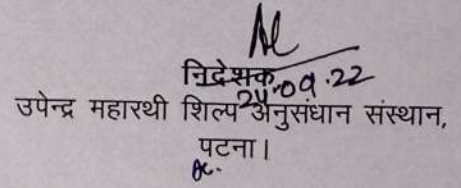 निदेशक
24.09.22
उपेन्द्र महारथी शिल्प अनुसंधान संस्थान,
पटना।